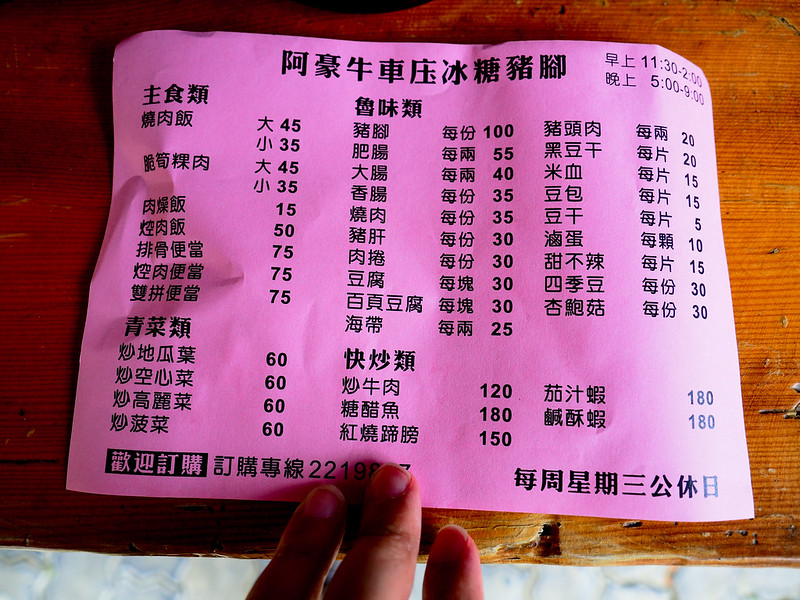 阿豪牛車庄冰糖豬腳
早上 11:30-2:00
晚上 5:00-9:00
主食類
燒肉飯 大 45
小 35
脆筍粿肉 大 45
小 35
肉燥飯 15
焢肉飯 50
排骨便當 75
焢肉便當 75
雙拼便當 75
青菜類
炒地瓜葉 60
炒空心菜 60
炒高麗菜 60
炒菠菜 60
魯味類
豬腳 每份 100
肥腸 每兩 55
大腸 每兩 40
香腸 每份 35
燒肉 每份 35
豬肝 每份 30
肉捲 每份 30
豆腐 每塊 30
百頁豆腐 每塊 30
海帶 每兩 25
豬頭肉 每兩 20
黑豆干 每片 20
米血 每片 15
豆包 每片 15
豆干 每片 5
滷蛋 每顆 10
甜不辣 每片 15
四季豆 每份 30
杏鮑菇 每份 30
快炒類
炒牛肉 120
糖醋魚 180
紅燒蹄膀 150
茄汁蝦 180
鹹酥蝦 180
歡迎訂購 訂購專線2219
每周星期三公休日